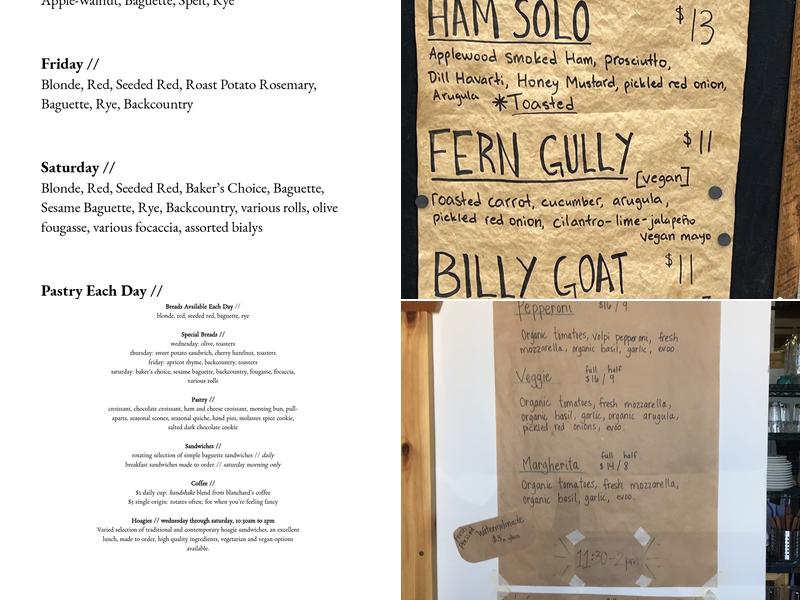 Apple-walnut, Baguette, Spelt, Rye
Friday //
Blonde, Red, Seeded Red, Roast Potato Rosemary,
Baguette, Rye, Backcountry
Saturday //
Blonde, Red, Seeded Red, Baker's Choice, Baguette,
Sesame Baguette, Rye, Backcountry, various rolls, olive
fougasse, various focaccia, assorted bialys
Pastry Each Day //
Breads Available Each Day //
blonde, red, seeded red, baguette, rye
Special Breads //
wednesday: olive, toasters
thursday: sweet potato sandwich, cherry hazelnut, toasters
friday: apricot thyme, backcountry, toasters
saturday: baker's choice, sesame baguette, backcountry, fougasse, focaccia,
various rolls
Pastry //
croissant, chocolate croissant, ham and cheese croissant, morning bun, pull-
aparts, seasonal scones, seasonal quiche, hand pies, molasses spice cookie,
salted dark chocolate cookie
Sandwiches //
rotating selection of simple baguette sandwiches // daily
breakfast sandwiches made to order // saturday morning only
Coffee //
$2 daily cup: handshake blend from blanchard's coffee
$3 single origin: rotates often; for when you're feeling fancy
Hoagies // wednesday through saturday, 10:30am to 2pm
Varied selection of traditional and contemporary hoagie sandwiches, an excellent
lunch, made to order, high quality ingredients, vegetarian and vegan options
available.
HAM SOLO $13
Applewood smoked Ham, prosciutto,
Dill Havarti, Honey Mustard, pickled red onion,
Arugula *Toasted
FERN GULLY $11
[vegan]
roasted carrot, cucumber, arugula,
pickled red onion, cilantro-lime-jalapeño
vegan mayo
BILLY GOAT $11
Pepperoni $16/9
Organic tomatoes, volpi pepperoni, fresh
mozzarella, organic basil, garlic, evoo.
Veggie full half
$16/9
Organic tomatoes, fresh mozzarella,
organic basil, garlic, organic arugula,
pickled red onions, evoo.
Margherita full half
$14/8
Organic tomatoes, fresh mozzarella,
organic basil, garlic, evoo.
11:30-2pm